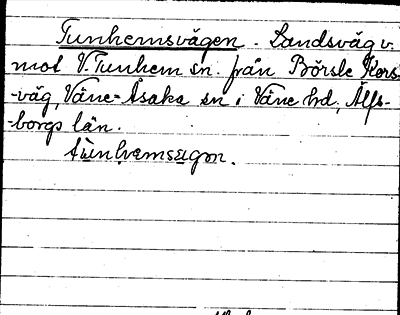 Tunhemsvägen. Landsväg v.
mot V. Tunhem sn. från Börsle Kors-
-väg, Väne-Åsaka sn i Väne hd, Älfs-
-borgs län.